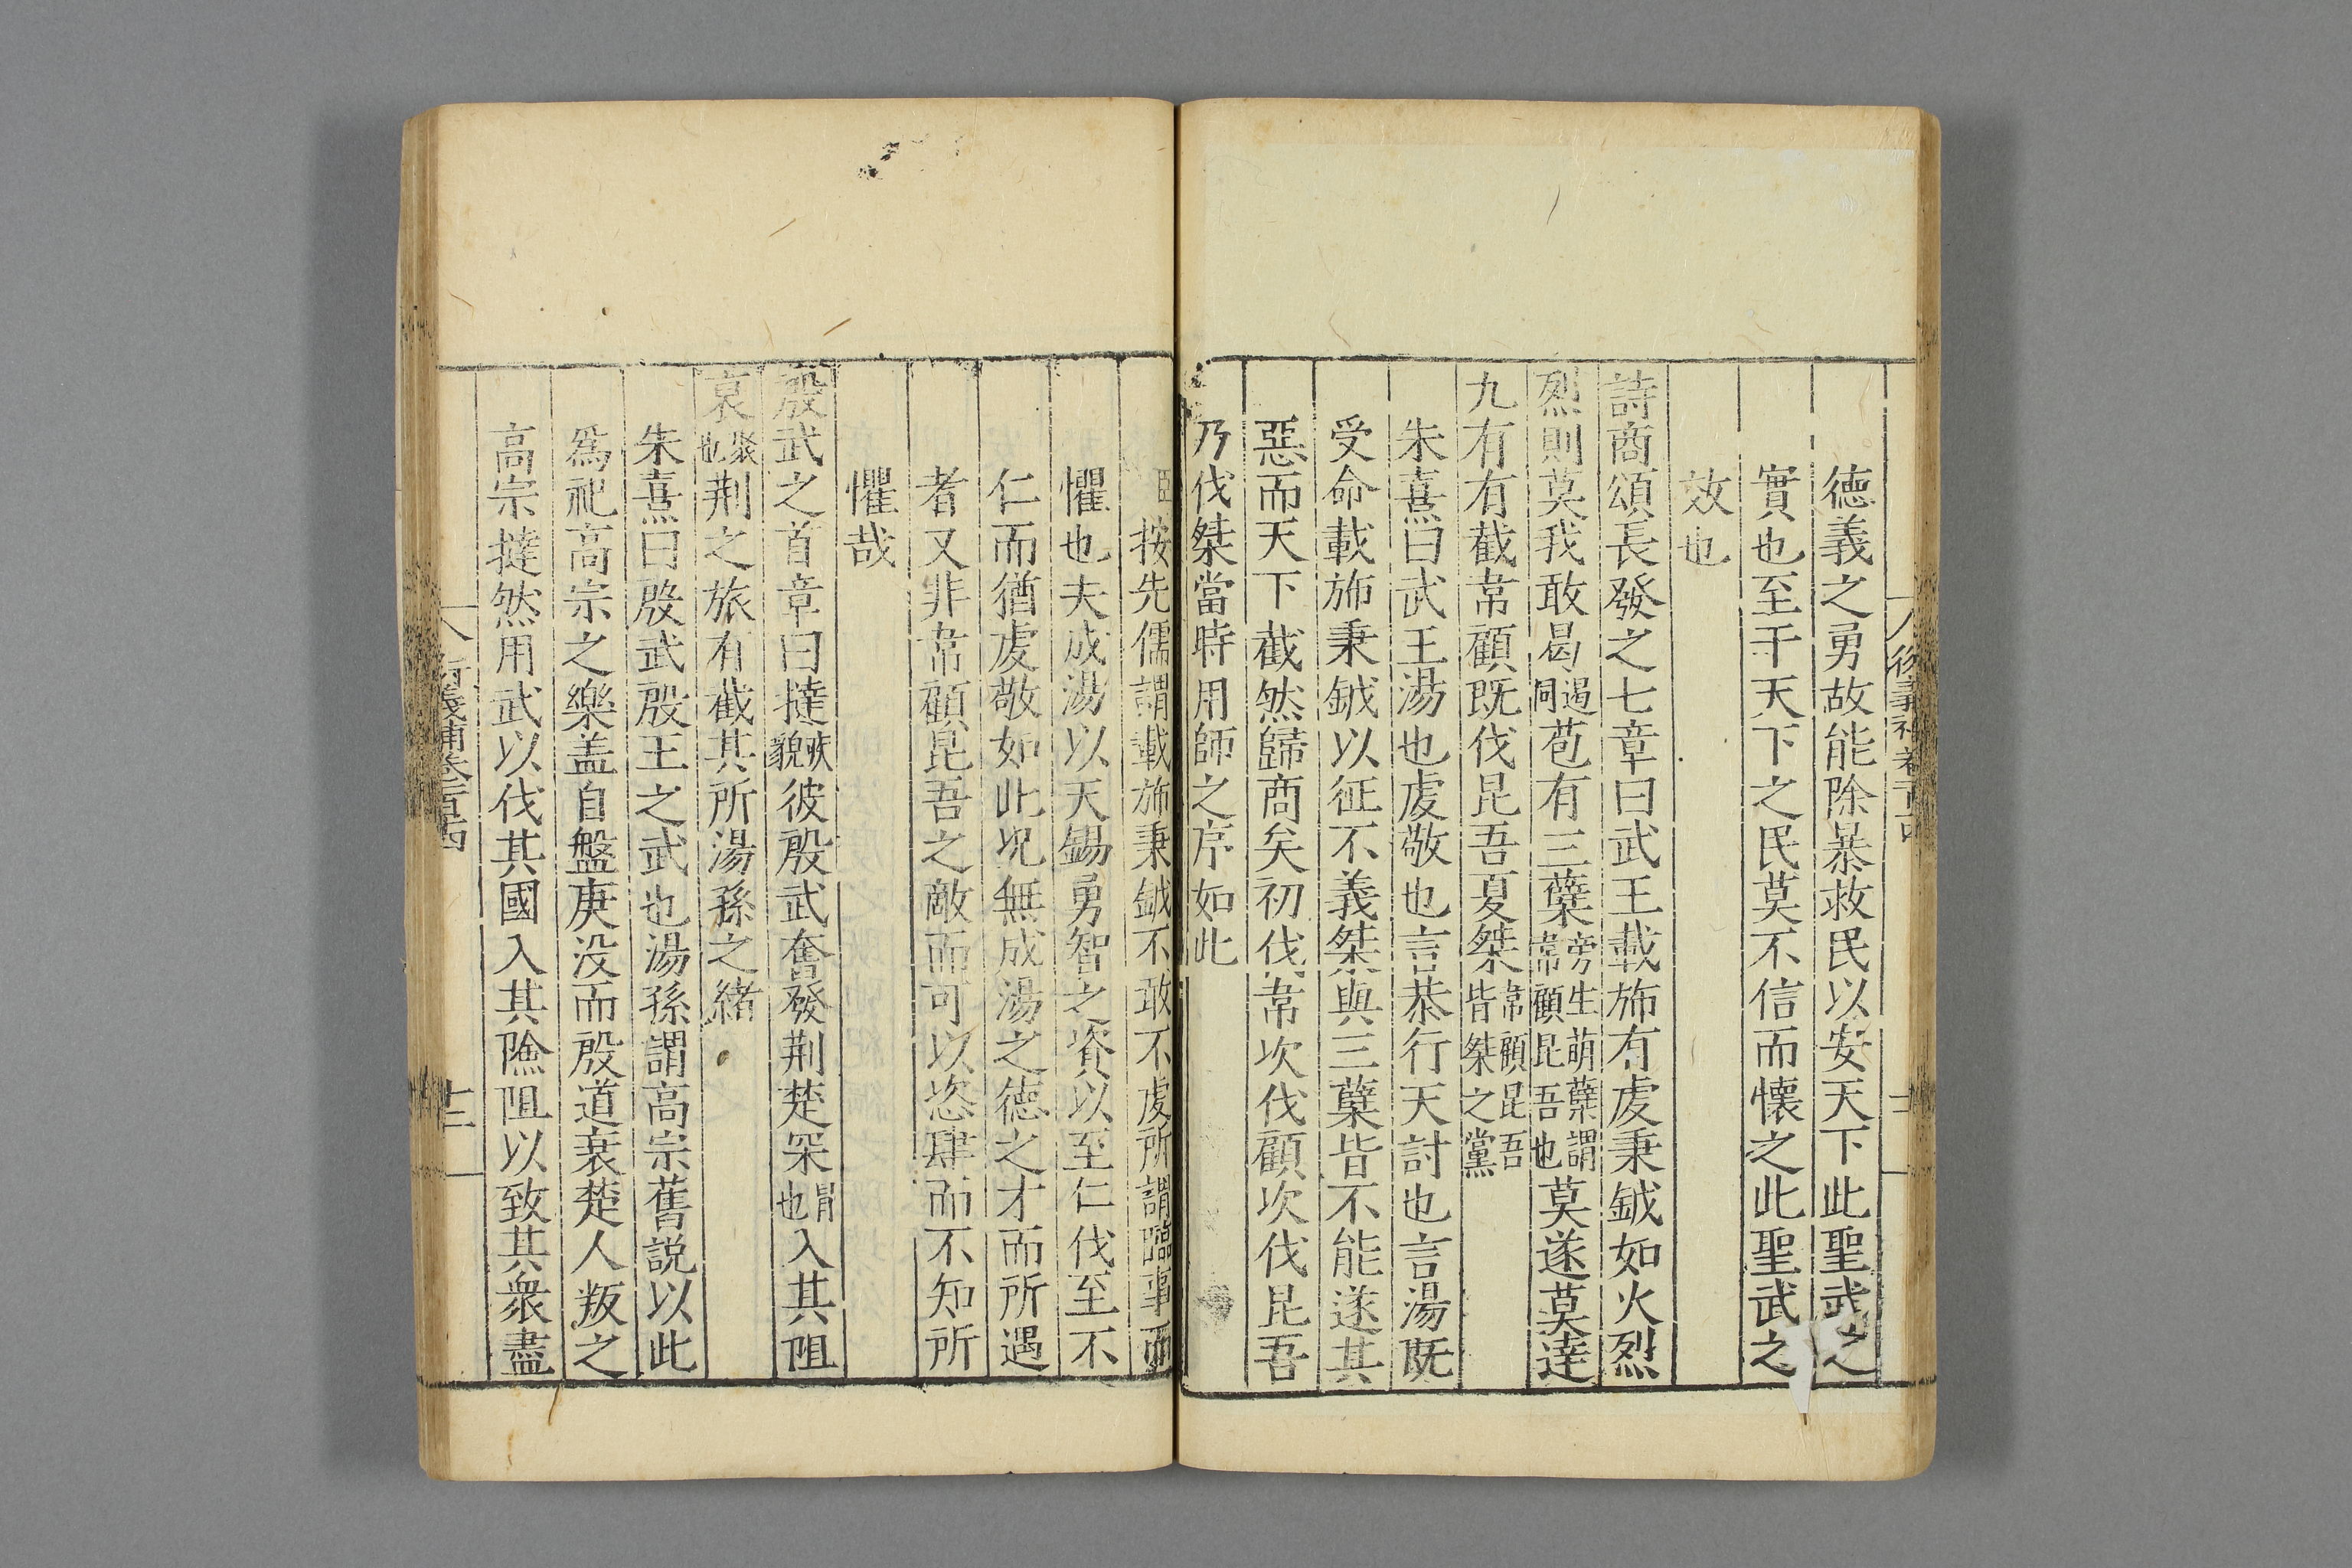 德義之勇故能除暴救民以安天下此聖武之
實也至于天下之民莫不信而懷之此聖武之
效也
詩商頌長發之七章曰武王載斾有虔秉鉞如火烈
烈則莫我敢曷遏同苞有三蘖旁生萌蘖謂韋顧昆吾也莫遂莫達
九有有截韋顧既伐昆吾夏桀韋顧昆吾皆桀之黨
朱熹曰武王湯也虔敬也言恭行天討也言湯既
受命載斾秉鉞以征不義桀與三蘖皆不能遂其
惡而天下截然歸商矣初伐韋次伐顧次伐昆吾
乃伐桀當時用師之序如此
臣按先儒謂載斾秉鉞不敢不虔所謂臨事而
懼也夫成湯以天錫勇智之資以至仁伐至不
仁而猶虔敬如此况無成湯之德之才而所遇
者又非韋顧昆吾之敵而可以恣肆而不知所
懼哉
殷武之首章曰撻疾貌彼殷武奮發荆楚罙冒也入其阻
裒聚也荆之旅有截其所湯孫之緒
朱熹曰殷武殷王之武也湯孫謂高宗舊說以此
爲祀高宗之樂盖自盤庚没而殷道衰楚人叛之
高宗撻然用武以伐其國入其險阻以致其衆盡
衍義補卷一百四
十三